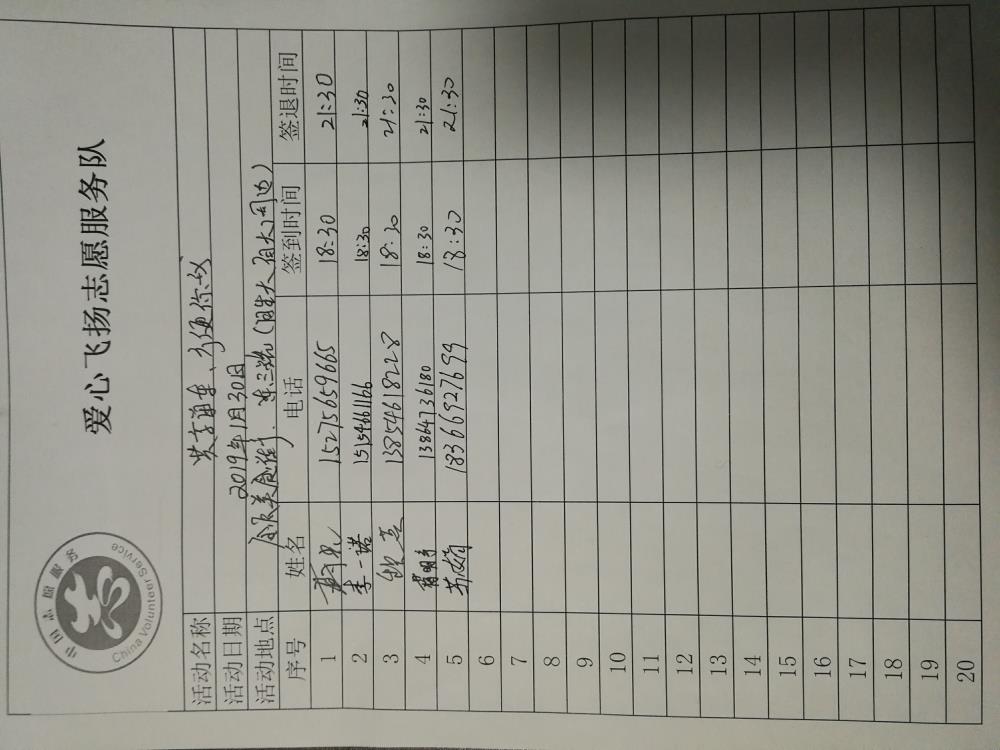 中国志愿服务
China Volunteer Service
爱心飞扬志愿服务队
活动名称 共享单车、方便你我
活动日期 2019年1月30日
活动地点 美食街、东三路
序号 姓名 电话 签到时间 签退时间
1 15275659665 18:30 21:30
2 李一诺 15154661166 18:30 21:30
3 13854618228 18:30 21:30
4 13864736180 18:30 21:30
5 18366927699 18:30 21:30
6
7
8
9
10
11
12
13
14
15
16
17
18
19
20